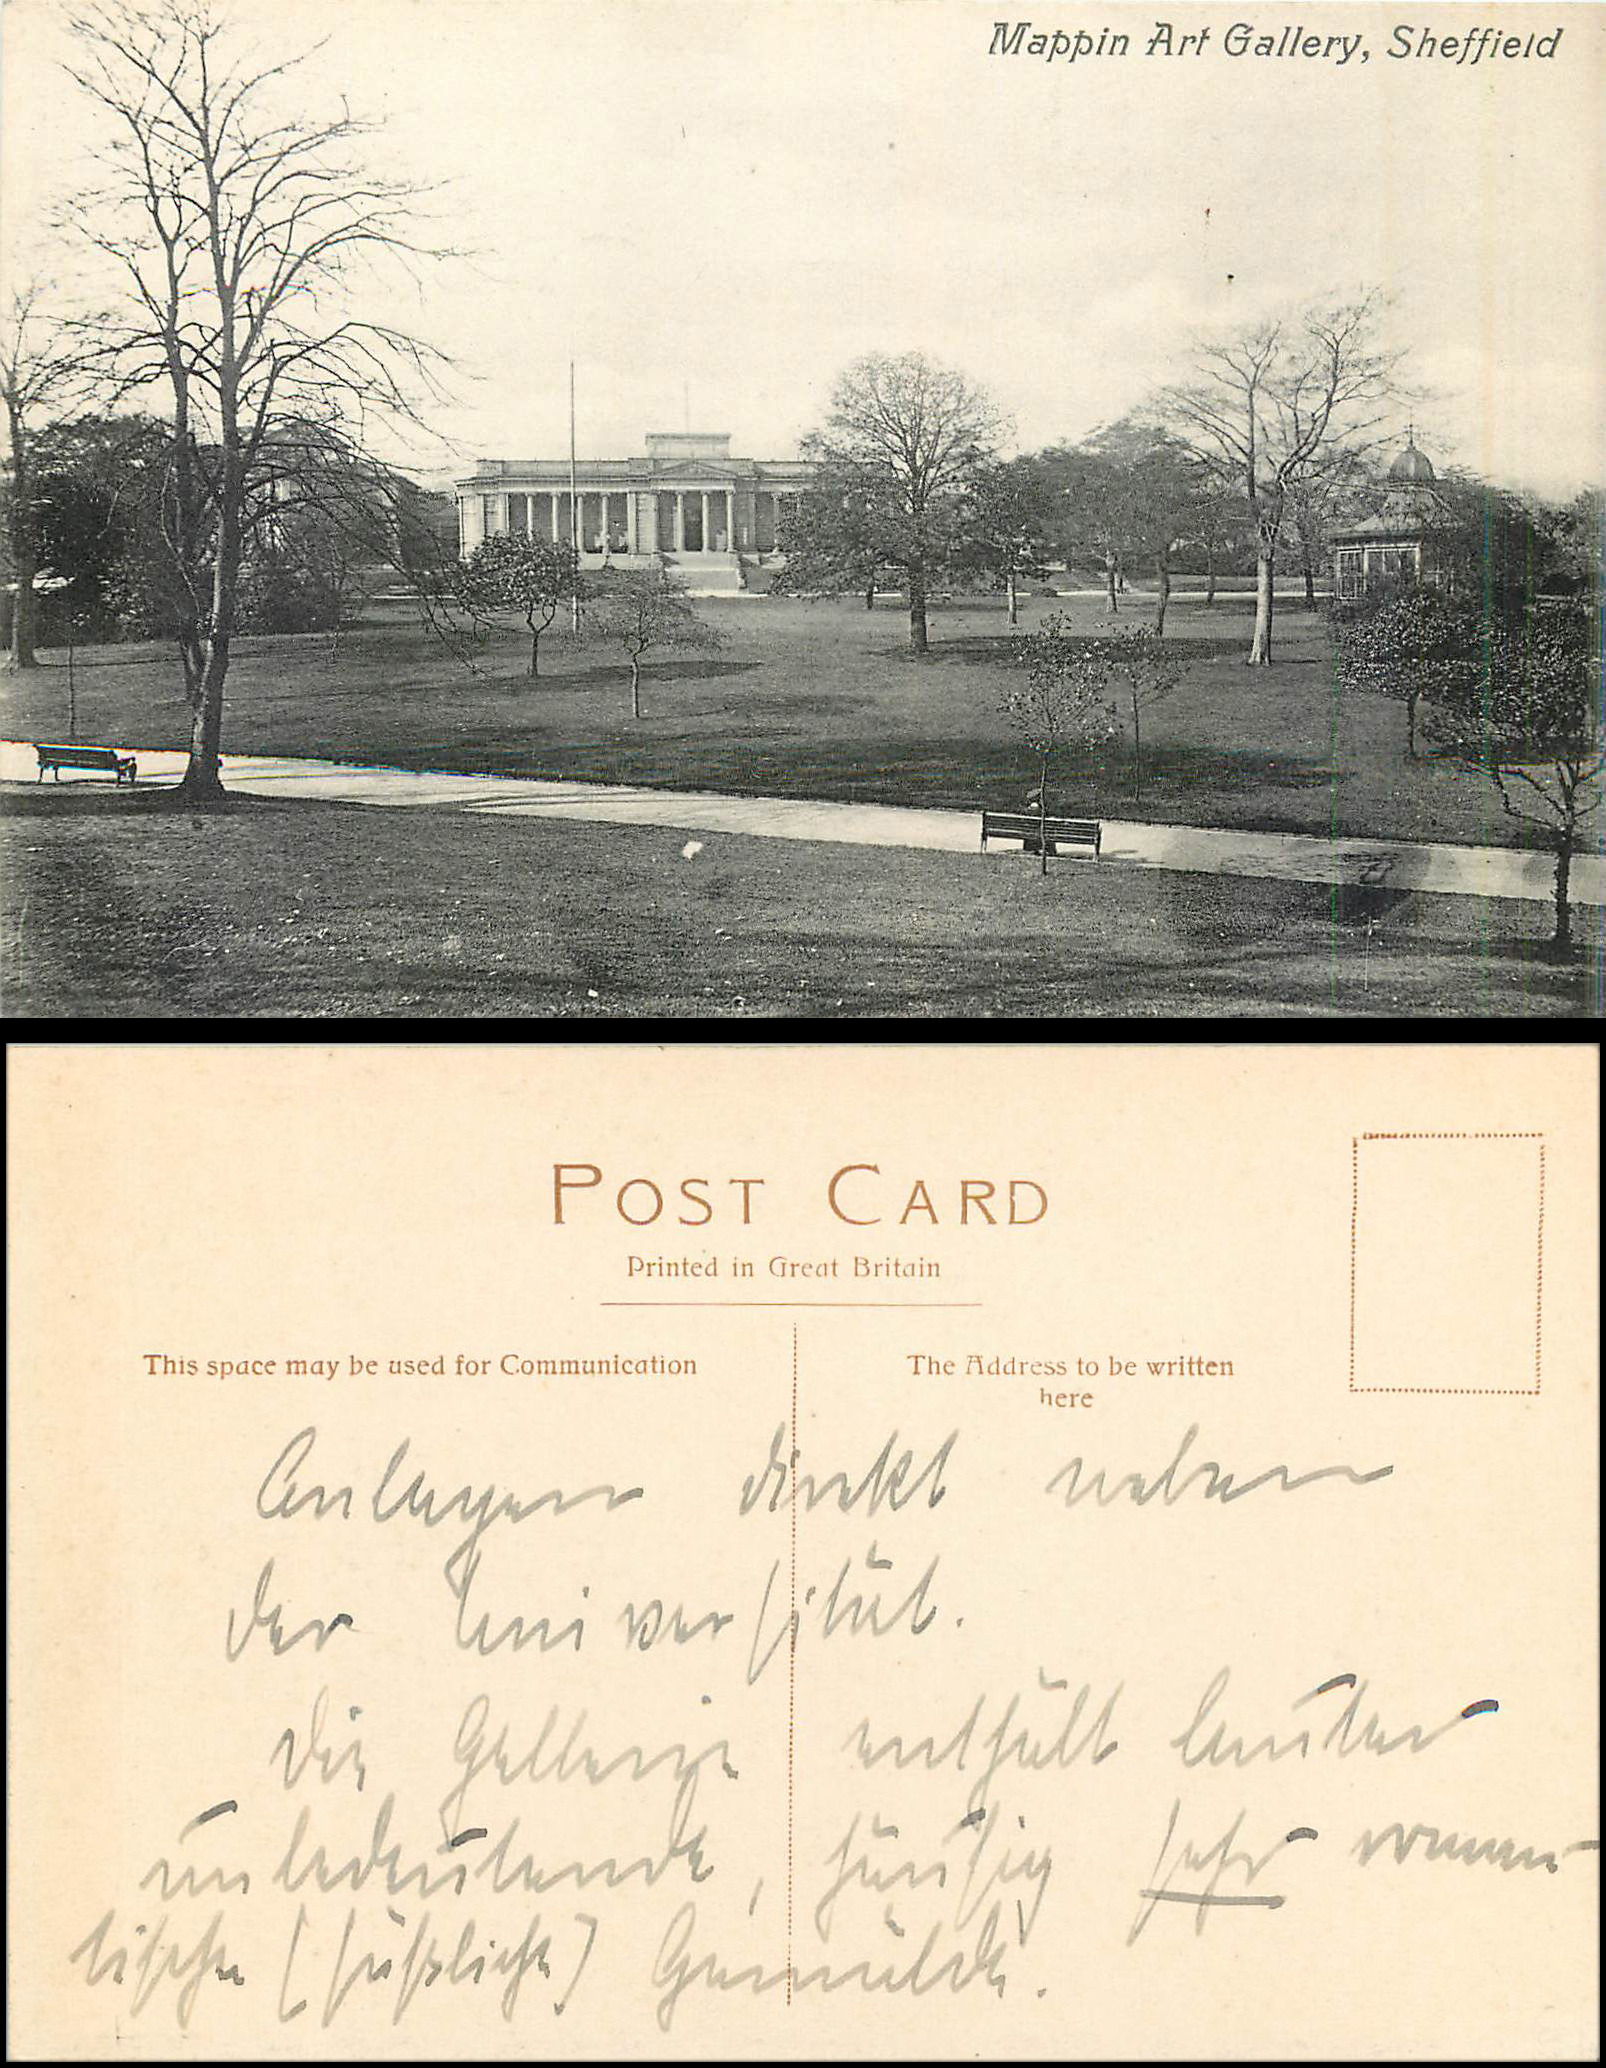 Mappin Art Gallery, Sheffield
POST CARD
Printed in Great Britain
This space may be used for Communication
The Address to be written
here
Anlagen direkt neben
der Universität.
Die Gallerie enthält lauter
unbedeutende, häufig sehr roman-
tische (süßliche) Gemälde.